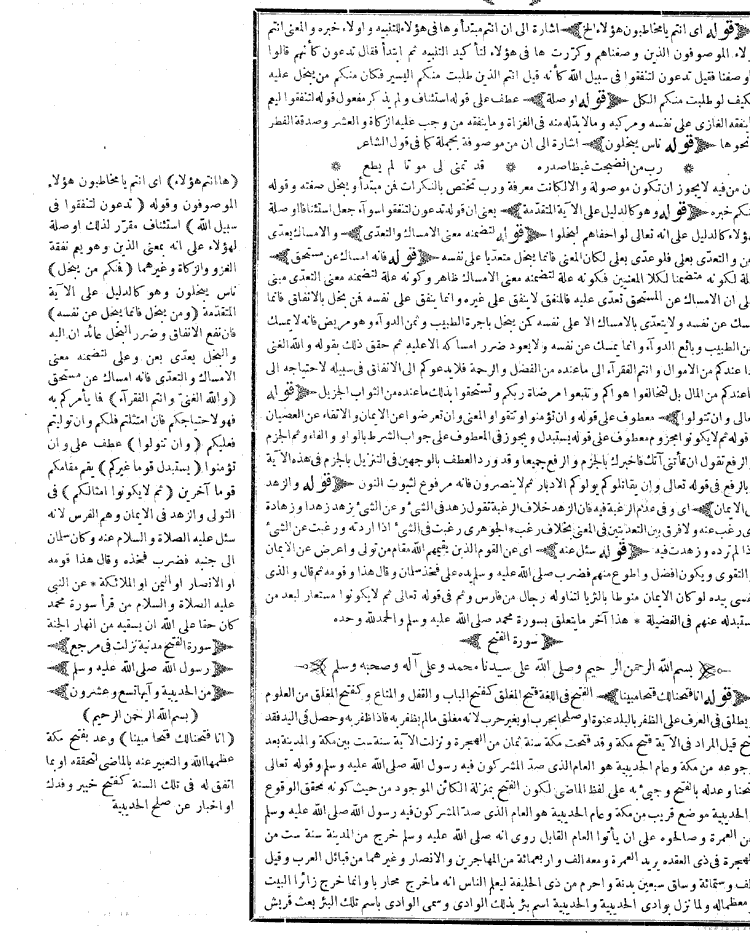 قوله اى انتم يا مخاطبون هؤلاء الخ اشارة الى ان انتم مبتدأ وها فى هؤلاء للتنبيه و اولاء خبره والمعنى انتم
الموصوفون الذين وصفناهم وكررت ها فى هؤلاء لتأكيد التنبيه ثم ابتدأ فقال تدعون كأنهم قالوا
وصفنا فقيل تدعون لتنفقوا فى سبيل الله كأنه قيل انتم الذين طلبت منكم اليسير فكان منكم من يبخل عليه
كيف لو طلبت منكم الكل قوله او صلة عطف على قوله استئناف ولم يذكر مفعول قوله لتنفقوا ليعم
ينفقه الغازى على نفسه ومركبه وما لا بد له منه فى الغزاة وما ينفقه من وجب عليه الزكاة والعشر وصدقة الفطر
نحوها قوله ناس يبخلون اشارة الى ان من موصوفة بجملة كما فى قول الشاعر
رب من انضجت غيظا صدره * قد تمنى لى موتا لم يطع *
من فيه لا يجوز ان تكون موصولة والا لكانت معرفة ورب تختص بالنكرات فمن مبتدأ ويبخل صفته وقوله
منكم خبره قوله وهو كالدليل على الآية المتقدمة يعنى ان قوله تدعون لتنفقوا سواء جعل استئنافا او صلة
هؤلاء كالدليل على انه تعالى لو احفاهم لبخلوا قوله لتضمنه معنى الامساك والتعدى والامساك يعدى
بعن والتعدى بعلى فلو عدى بعلى لكان المعنى فانما يبخل متعديا على نفسه قوله فانه امساك عن مستحق
علة لكونه متضمنا لكلا المعنيين فكونه علة لتضمنه معنى الامساك ظاهر وكونه علة لتضمنه معنى التعدى مبنى
على ان الامساك عن المستحق تعدى عليه فالمنفق لا ينفق على غيره وانما ينفق على نفسه فمن يبخل بالانفاق فانما
يمسك عن نفسه ولا يتعدى بالامساك الا على نفسه كمن يبخل باجرة الطبيب وثمن الدواء وهو مريض فانه لا يمسك
عن الطبيب وبائع الدواء وانما يمسك عن نفسه ولا يعود ضرر امساكه الا عليه ثم حقق ذلك بقوله والله الغنى
عما عندكم من الاموال وانتم الفقراء الى ما عنده من الفضل والرحمة فلا يدعوكم الى الانفاق فى سبيله لاحتياجه الى
ما عندكم من المال بل لتخالفوا هواكم وتتبعوا مرضاة ربكم وتستحقوا بذلك ما عنده من الثواب الجزيل قوله
تعالى وان تتولوا معطوف على قوله وان تؤمنوا وتتقوا والمعنى وان تعرضوا عن الايمان والاتقاء عن العصيان
قوله ثم لا يكونوا مجزوم معطوف على قوله يستبدل ويجوز فى المعطوف على جواب الشرط بالواو والفاء وثم الجزم
والرفع تقول ان تأتنى آتك فاخبرك بالجزم والرفع جميعا وقد ورد العطف بالوجهين فى التنزيل بالجزم فى هذه الآية
وبالرفع فى قوله تعالى وان يقاتلوكم يولوكم الادبار ثم لا ينصرون فانه مرفوع لثبوت النون قوله والزهد
فى الايمان اى وفى عدم الرغبة فيه فان الزهد خلاف الرغبة تقول زهد فى الشئ وعن الشئ يزهد زهدا وزهادة
اى رغب عنه ولا فرق بين التعديتين فى المعنى بخلاف رغب * الجوهرى رغبت فى الشئ اذا اردته ورغبت عن الشئ
اذا لم ترده وزهدت فيه قوله سئل عنه اى عن القوم الذين يقيمهم الله مقام من تولى واعرض عن الايمان
والتقوى ويكون افضل واطوع منهم فضرب صلى الله عليه وسلم يده على فخذ سلمان وقال هذا وقومه ثم قال والذى
نفسى بيده لو كان الايمان منوطا بالثريا لتناوله رجال من فارس وثم فى قوله تعالى ثم لا يكونوا مستعار لبعد من
يستبدله عنهم فى الفضيلة * هذا آخر ما يتعلق بسورة محمد صلى الله عليه وسلم والحمد لله وحده
سورة الفتح
بسم الله الرحمن الرحيم وصلى الله على سيدنا محمد وعلى آله وصحبه وسلم
قوله انا فتحنا لك فتحا مبينا الفتح فى اللغة فتح المغلق كفتح الباب والقفل والمتاع وكفتح المغلق من العلوم
ويطلق فى العرف على الظفر بالبلد عنوة او صلحا بحرب او بغير حرب لانه مغلق ما لم يظفر به فاذا ظفر به وحصل فى اليد فقد
فتح قيل المراد فى الآية فتح مكة وقد فتحت مكة سنة ثمان من الهجرة ونزلت الآية سنة ست بين مكة والمدينة بعد
رجوعه من مكة وعام الحديبية هو العام الذى صد المشركون فيه رسول الله صلى الله عليه وسلم وقوله تعالى
فتحنا وعد له بالفتح وجئ به على لفظ الماضى لكون الفتح بمنزلة الكائن الموجود من حيث كونه محقق الوقوع
والحديبية موضع قريب من مكة وعام الحديبية هو العام الذى صد المشركون فيه رسول الله صلى الله عليه وسلم
عن العمرة وصالحوه على ان يأتوا العام القابل روى انه صلى الله عليه وسلم خرج من المدينة سنة ست من
الهجرة فى ذى القعدة يريد العمرة ومعه الف واربعمائة من المهاجرين والانصار وغيرهما من قبائل العرب وقيل
الف وستمائة وساق سبعين بدنة واحرم من ذى الحليفة ليعلم الناس انه ما خرج محاربا وانما خرج زائرا البيت
معظما له ولما نزل بوادى الحديبية والحديبية اسم بئر بذلك الوادى وسمى الوادى باسم تلك البئر بعث قريش
(ها انتم هؤلاء) اى انتم يا مخاطبون هؤلاء
الموصوفون وقوله (تدعون لتنفقوا فى
سبيل الله) استئناف مقرر لذلك او صلة
لهؤلاء على انه بمعنى الذين وهو يعم نفقة
الغزو والزكاة وغيرهما (فمنكم من يبخل)
ناس يبخلون وهو كالدليل على الآية
المتقدمة (ومن يبخل فانما يبخل عن نفسه)
فان نفع الانفاق وضرر البخل عائد ان اليه
والبخل يعدى بعن وعلى لتضمنه معنى
الامساك والتعدى فانه امساك عن مستحق
(والله الغنى وانتم الفقراء) فما يأمركم به
فهو لاحتياجكم فان امتثلتم فلكم وان توليتم
فعليكم (وان تتولوا) عطف على وان
تؤمنوا (يستبدل قوما غيركم) يقم مقامكم
قوما آخرين (ثم لا يكونوا امثالكم) فى
التولى والزهد فى الايمان وهم الفرس لانه
سئل عليه الصلاة والسلام عنه وكان سلمان
الى جنبه فضرب فخذه وقال هذا وقومه
او الانصار او اليمن او الملائكة * عن النبى
عليه الصلاة والسلام من قرأ سورة محمد
كان حقا على الله ان يسقيه من انهار الجنة
سورة الفتح مدنية نزلت فى مرجع
رسول الله صلى الله عليه وسلم
من الحديبية وآيها تسع وعشرون
(بسم الله الرحمن الرحيم)
(انا فتحنا لك فتحا مبينا) وعد بفتح مكة
عظمها الله والتعبير عنه بالماضى لتحققه او بما
اتفق له فى تلك السنة كفتح خيبر وفدك
او اخبار عن صلح الحديبية